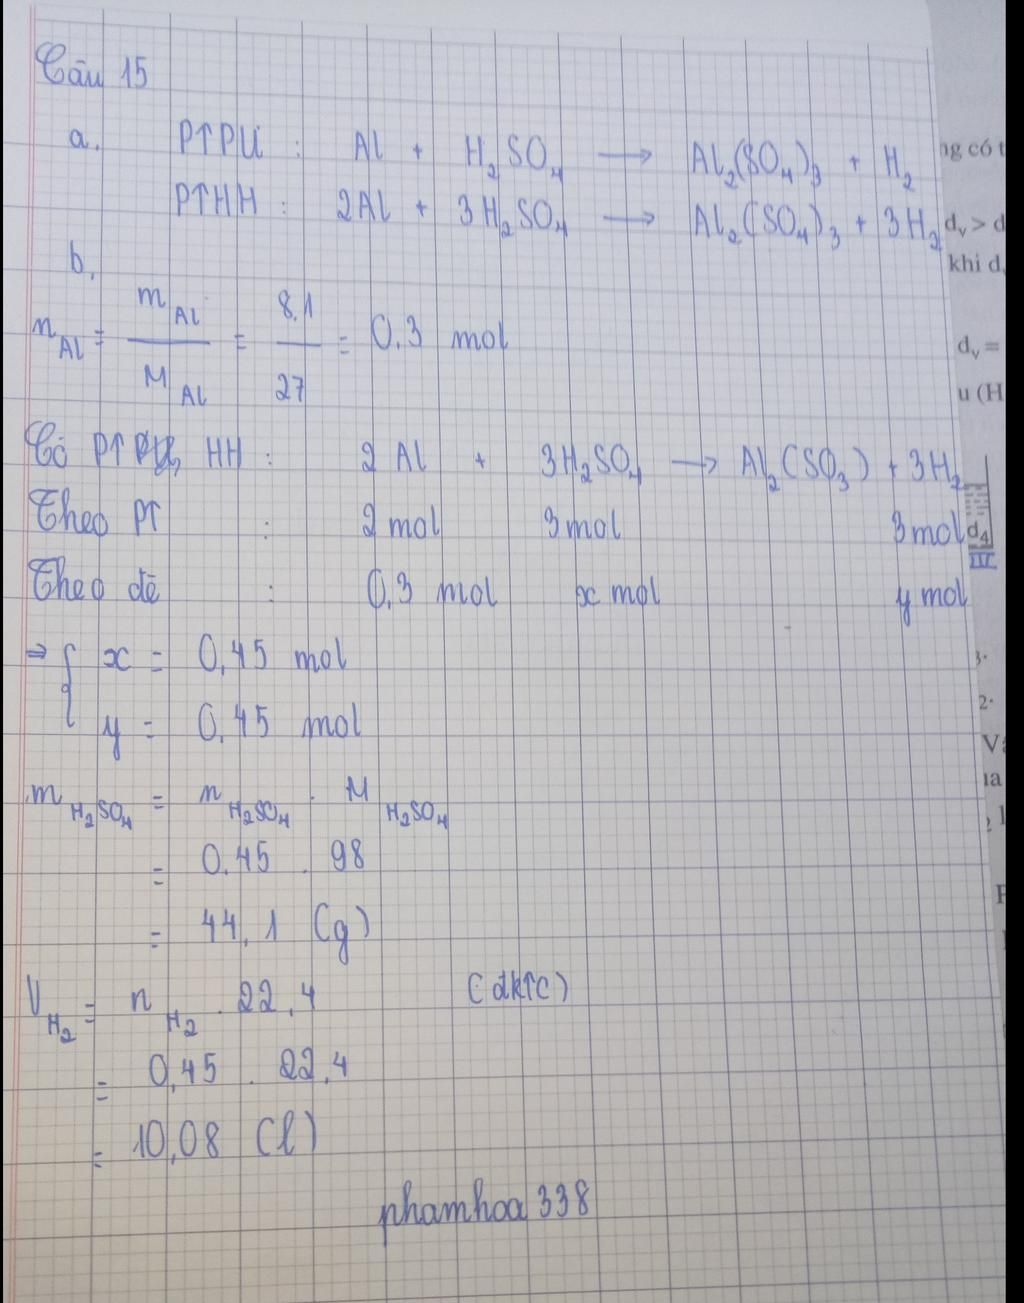 Câu 15
a. PTPƯ : Al + H₂SO₄ → Al₂(SO₄)₃ + H₂
PTHH : 2Al + 3H₂SO₄ → Al₂(SO₄)₃ + 3H₂
b,
n_Al = m_Al / M_Al = 8,1 / 27 = 0,3 mol
Có PT HH : 2Al + 3H₂SO₄ → Al₂(SO₃) + 3H₂
Theo PT : 2 mol 3 mol 3 mol
Theo đề : 0,3 mol x mol y mol
⇒ { x = 0,45 mol
y = 0,45 mol
m_H₂SO₄ = n_H₂SO₄ . M_H₂SO₄
= 0,45 . 98
= 44,1 (g)
V_H₂ = n_H₂ . 22,4 (đktc)
= 0,45 . 22,4
= 10,08 (l)
phamhoa 338
ng có t
dᵥ > d
khi d,
dᵥ =
u (H
d₄
III
3.
2.